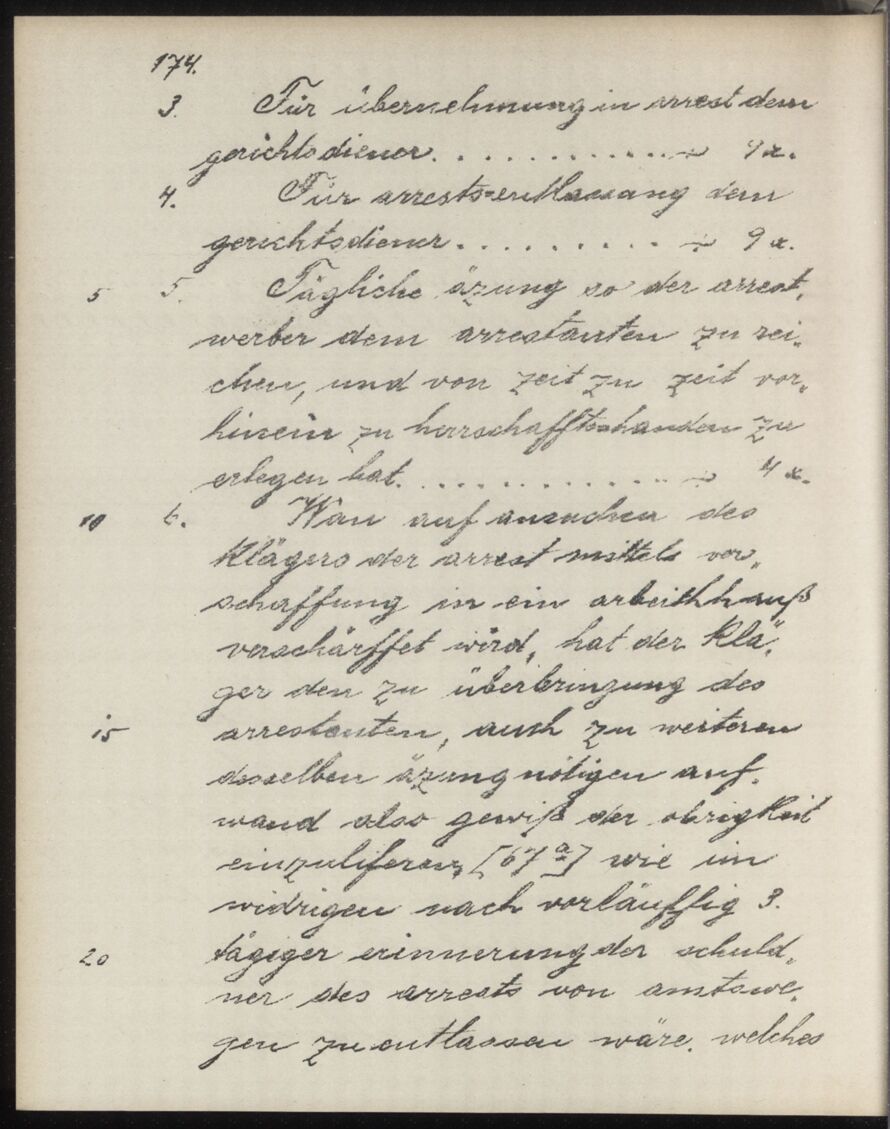 174.
3. Für übernehmung in arrest dem
gerichtsdiener. . . . . . . . . . . . . ÷ 9 x.
4. Für arrests-entlassung dem
gerichtsdiener . . . . . . . . . . . ÷ 9 x.
5 5. Tägliche äzung so der arrest„
werber dem arrestanten zu rei„
chen, und von zeit zu zeit vor„
hinein zu herrschafftshanden zu
erlegen hat. . . . . . . . . . . . . . ÷ 4 x.
10 6. Wan auf ansuchen des
Klägers der arrest mittels ver„
schaffung in ein arbeithhauß
verschärffet wird, hat der Klä„
ger den zu überbringung des
15 arrestanten, auch zu weiteren
desselben äzung nötigen auf„
wand also gewiß der obrigkeit
einzuliferen, [67 a] wie im
widrigen nach vorläuffig 3.
20 tägiger erinnerung der schuld„
ner des arrests von amtswe„
gen zu entlassen wäre. welches